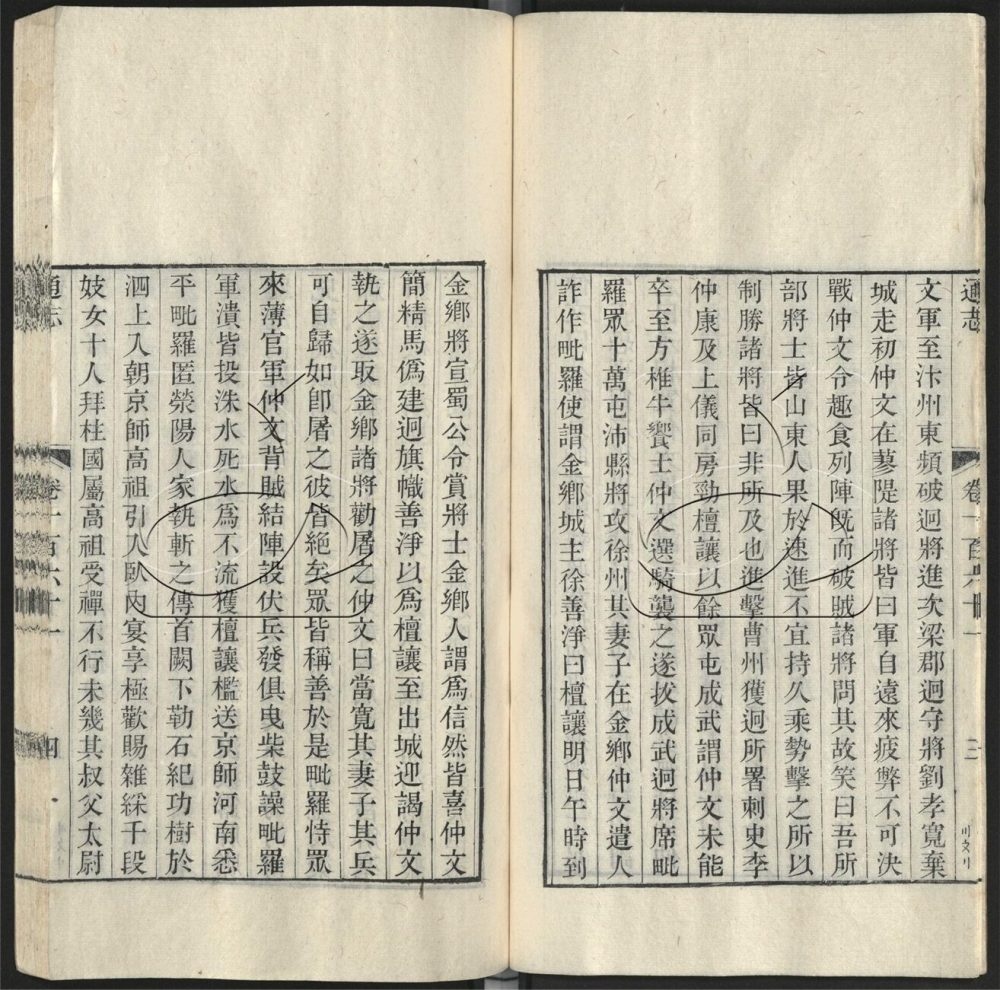 通志
卷一百六十一
三
文軍至汴州東頻破迥將進次梁郡迥守將劉孝寬棄
城走初仲文在蓼隄諸將皆曰軍自遠來疲弊不可決
戰仲文令趣食列陣旣而破賊諸將問其故笑曰吾所
部將士皆山東人果於速進不宜持久乘勢擊之所以
制勝諸將皆曰非所及也進擊曹州獲迥所署刺史李
仲康及上儀同房勁檀讓以餘眾屯成武謂仲文未能
卒至方椎牛饗士仲文選騎襲之遂拔成武迥將席毗
羅眾十萬屯沛縣將攻徐州其妻子在金鄉仲文遣人
詐作毗羅使謂金鄉城主徐善淨曰檀讓明日午時到
金鄉將宣蜀公令賞將士金鄉人謂爲信然皆喜仲文
簡精馬僞建迥旗幟善淨以爲檀讓至出城迎謁仲文
執之遂取金鄉諸將勸屠之仲文曰當寬其妻子其兵
可自歸如卽屠之彼皆絕矣眾皆稱善於是毗羅恃眾
來薄官軍仲文背賊結陣設伏兵發俱曳柴鼓譟毗羅
軍潰皆投洙水死水爲不流獲檀讓檻送京師河南悉
平毗羅匿滎陽人家執斬之傳首闕下勒石紀功樹於
泗上入朝京師高祖引入臥內宴享極歡賜雜綵千段
妓女十人拜柱國屬高祖受禪不行未幾其叔父太尉
通志
卷一百六十一
四